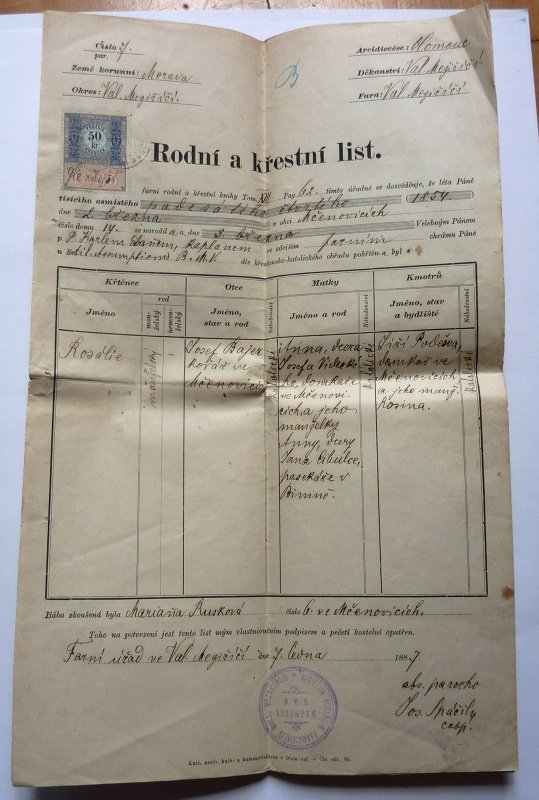 Číslo 7.
par.
Země korunní: Morava
Okres: Val. Megiříčí.
Arcidiecése: Olomouc
Děkanství: Val. Megiříčí
Fara: Val. Megiříčí
B
50
kr.
Rodní a křestní list.
farní rodní a křestní knihy Tom. XIII Pag. 62. tímto úřadně se dosvědčuje, že léta Páně
tisícího osmistého padesátého čtvrtého 1854.
dne 2. března v obci Mčenovicích
číslo domu 14. se narodila a, dne 3. března Velebným Pánem
P. Karlem kaplanem ve zdejším farním chrámu Páně
v Sctl. Assumptionis B. M. V. dle křesťansko-katolického obřadu pokřtěn a byl a
Křtěnce
Otce
Matky
Kmotrů
rod
Jméno
manželský
nemanželský
Jméno, stav a rod
Náboženství
Jméno a rod
Náboženství
Jméno, stav a bydliště
Náboženství
Rosálie
manželský
Josef Bajer
kovář ve
Mčenovicích
katolické
Anna, dcera
Josefa
domkaře
ve Mčenovi-
cích a jeho
manželky
Anny, dcery
Jana Cibulce,
pasekáře v
katolické
Jiří Poděšva,
domkař ve
Mčenovicích
a jeho manž.
Rosina.
katolické
Bába zkoušená byla Marianna Rusková číslo 6. ve Mčenovicích.
Toho na potvrzení jest tento list mým vlastnoručním podpisem a pečetí kostelní opatřen.
Farní úřad ve Val. Megiříčí dne 7. ledna 1887
B. M. V.
ASSUMPTÆ
abs. parocho
Jos. Spáčily
coop.
Knih. arcib. knih- a kamenotiskárna v Olomouci. — Čís. skl. 95.